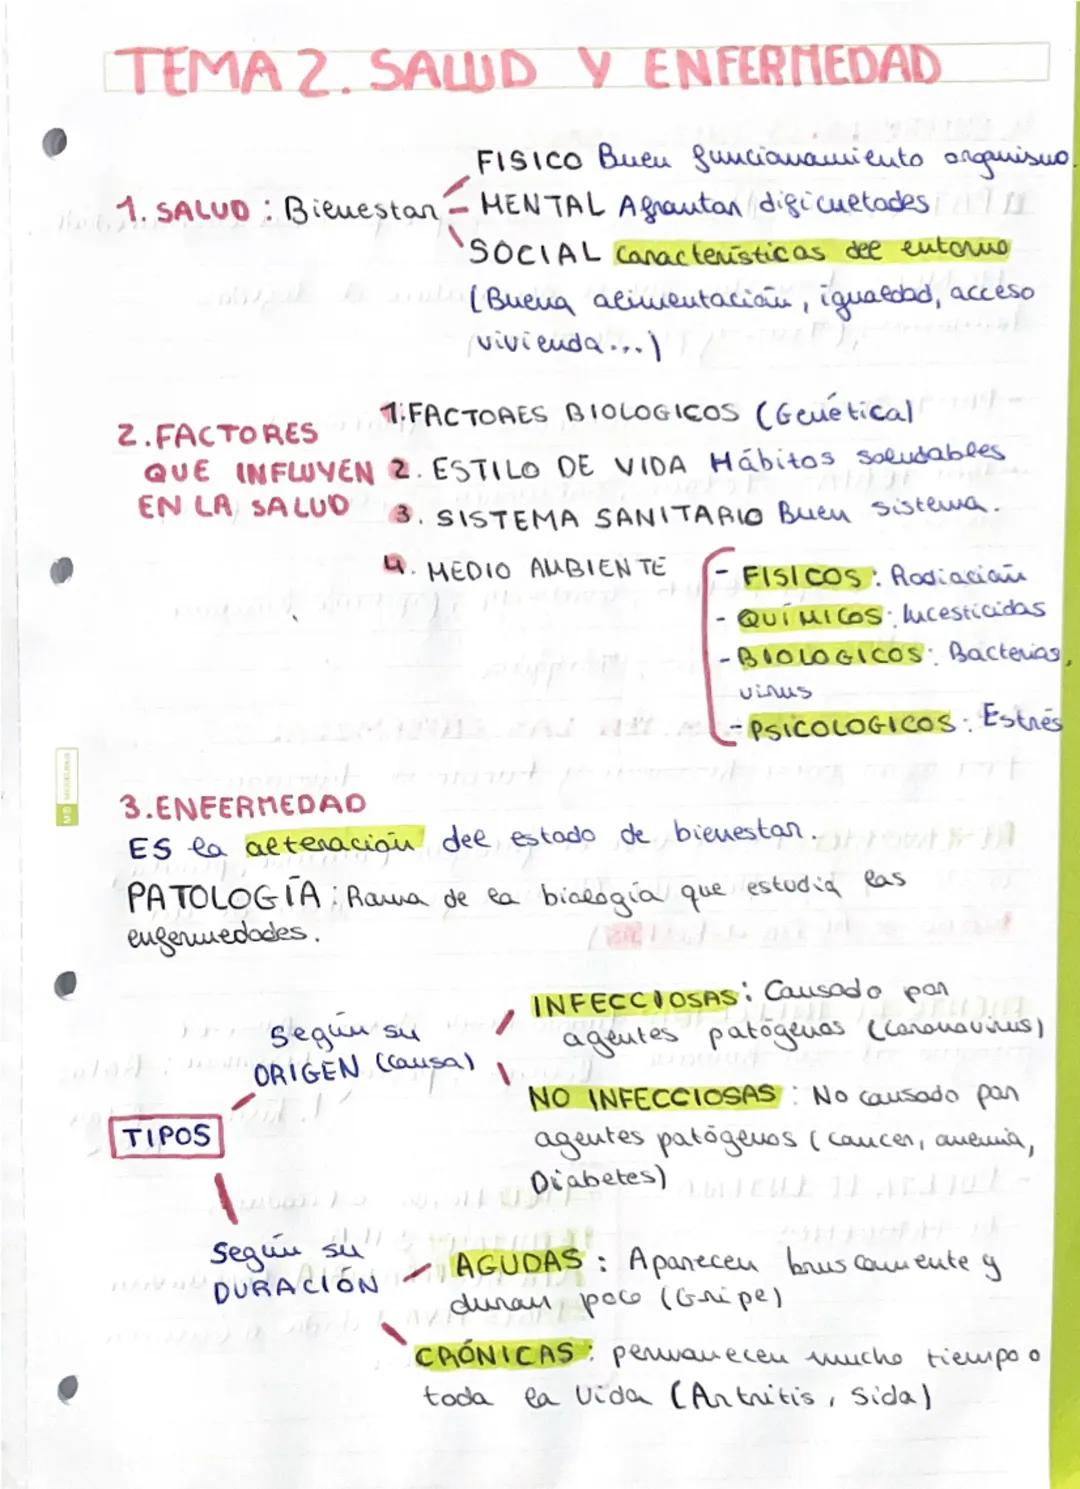 TEMA 2. SALUD Y ENFERMEDAD
FISICO Buen funcionamiento organismo.
1. SALUD : Bienestar - MENTAL Afrontar dificuetades
SOCIAL Características del entorno
(Buena alimentación, igualdad, acceso
vivienda...)
1. FACTORES BIOLOGICOS (Genética)
2. FACTORES
QUE INFLUYEN 2. ESTILO DE VIDA Hábitos saludables
EN LA SALUD 3. SISTEMA SANITARIO Buen sistema.
4. MEDIO AMBIENTE - FISICOS: Radiación
- QUÍMICOS: Incesticidas
- BIOLOGICOS: Bacterias,
virus
- PSICOLOGICOS: Estrés
3. ENFERMEDAD
ES la alteración del estado de bienestar.
PATOLOGÍA: Rama de la biología que estudia las
enfermedades.
INFECCIOSAS: Causado por
Según su agentes patógenos (Coronavirus)
ORIGEN (Causa)
NO INFECCIOSAS: No causado por
TIPOS
agentes patógenos (cancer, anemia,
Diabetes)
Según su
DURACIÓN - AGUDAS: Aparecen bruscamente y
duran poco (Gripe)
CRÓNICAS: permanecen mucho tiempo o
toda la vida (Artritis, Sida)